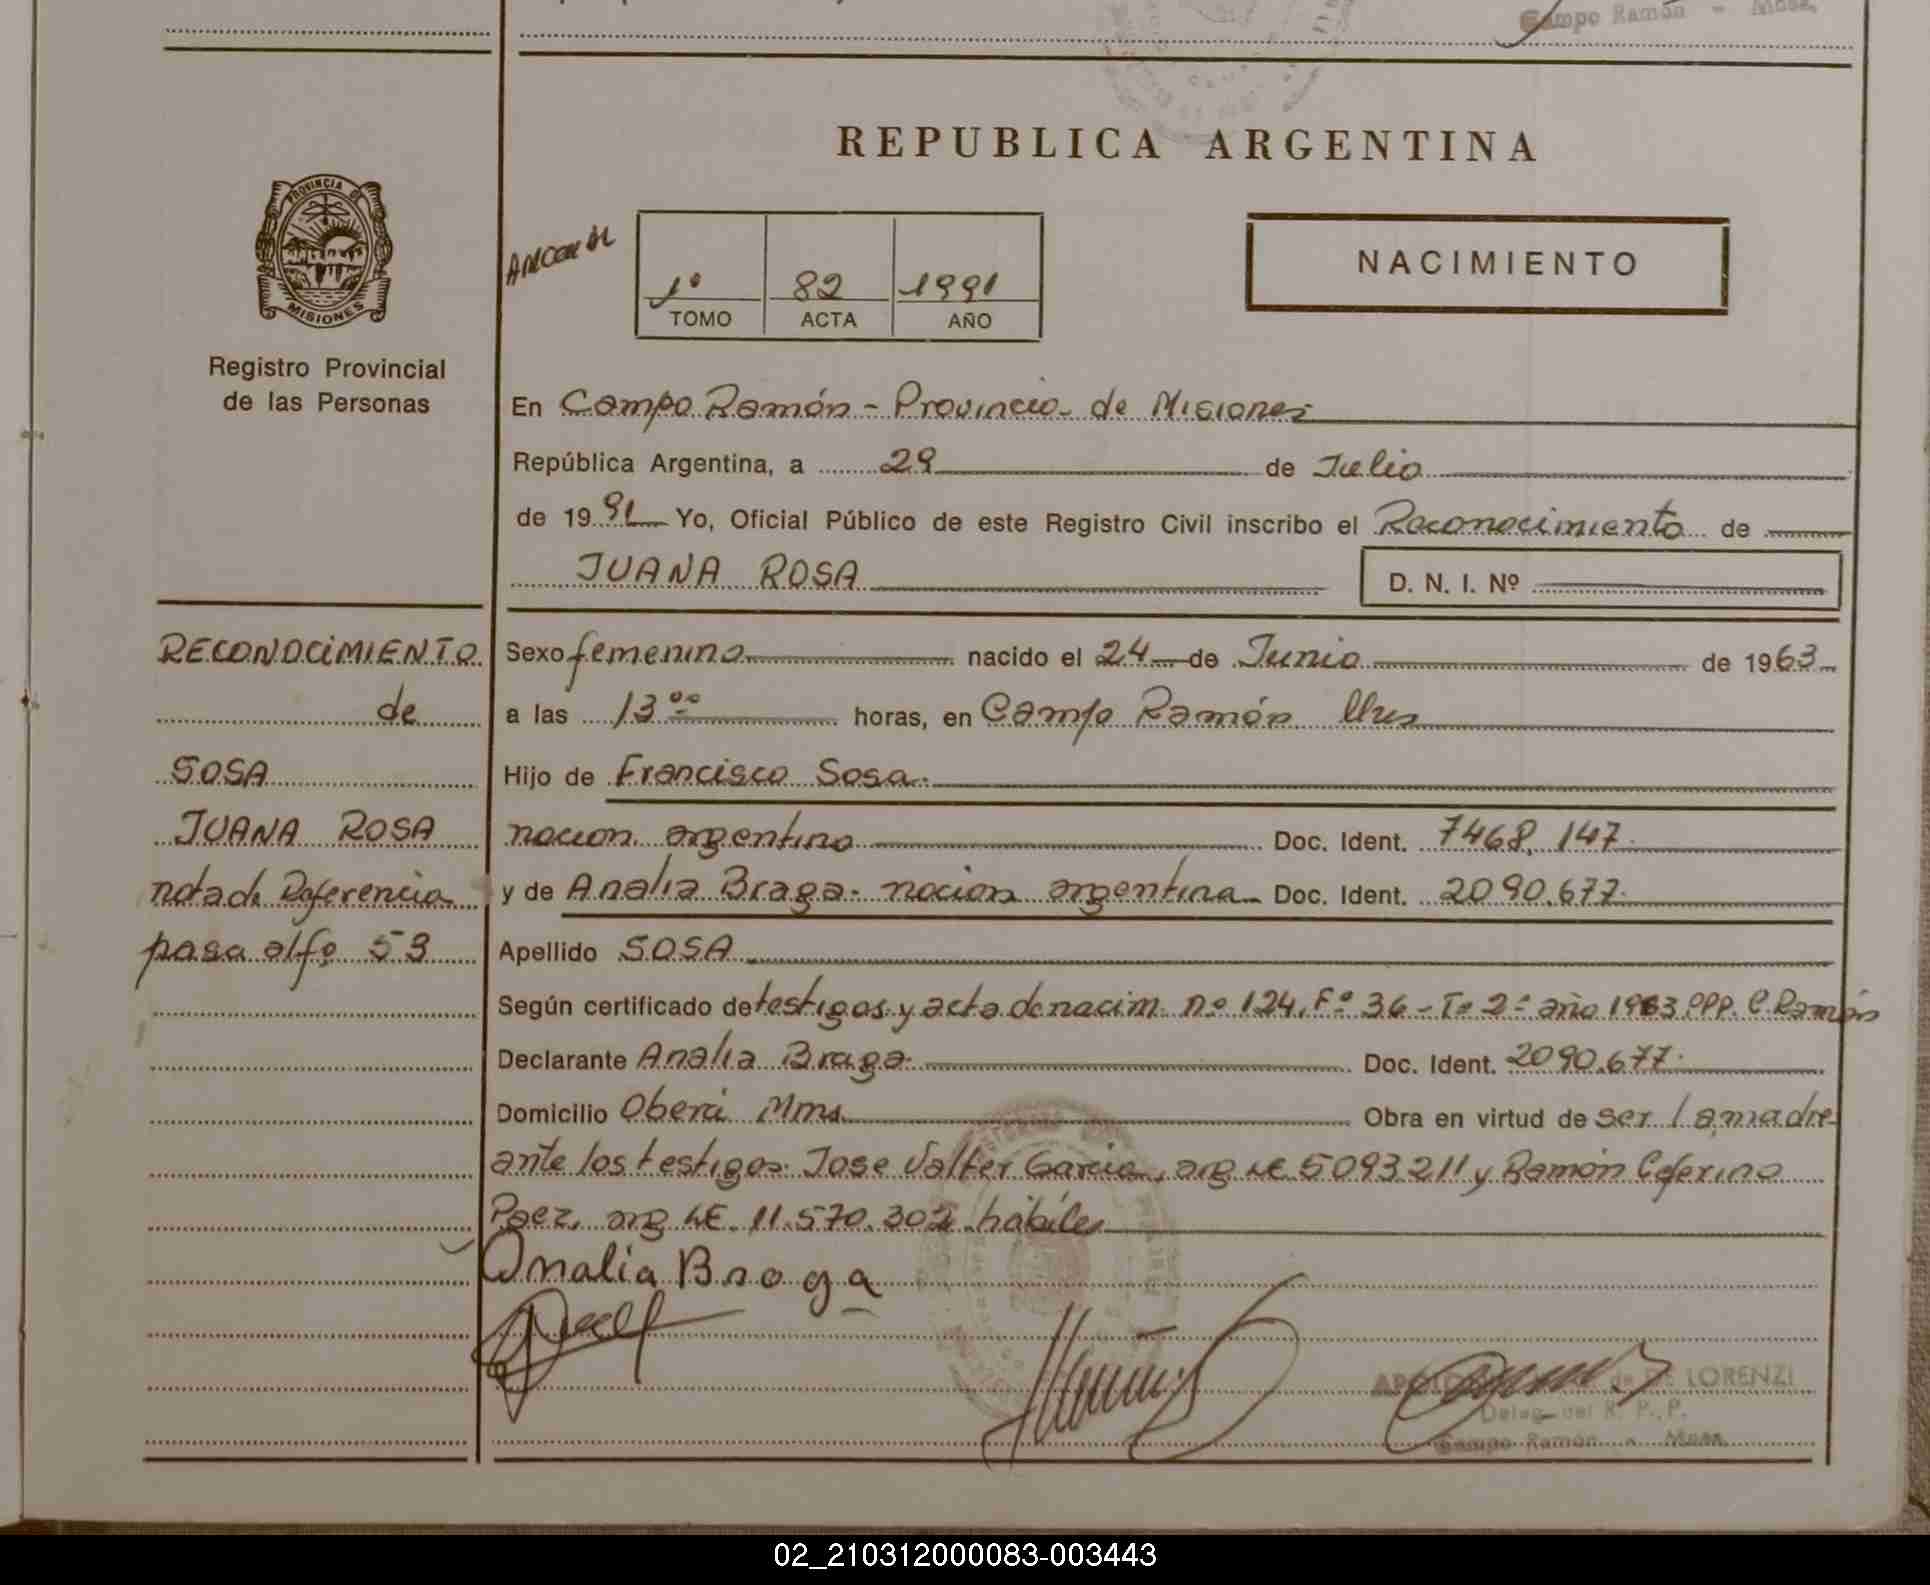 Campo Ramón - Mnes.
REPUBLICA ARGENTINA
PROVINCIA DE
MISIONES
Registro Provincial
de las Personas
1º 82 1991
TOMO ACTA AÑO
NACIMIENTO
En Campo Ramón - Provincia de Misiones
República Argentina, a 29 de Julio
de 1991 Yo, Oficial Público de este Registro Civil inscribo el Reconocimiento de
JUANA ROSA D. N. I. Nº
RECONOCIMIENTO
de
SOSA
JUANA ROSA
nota de Referencia
pasa al fº 53
Sexo femenino nacido el 24 de Junio de 1963
a las 13ºº horas, en Campo Ramón Mnes
Hijo de Francisco Sosa.
nacion argentino Doc. Ident. 7468.147.
y de Analia Braga. nacion argentina Doc. Ident. 2090.677.
Apellido SOSA
Según certificado de testigos y acta de nacim. nº 124, Fº 36 - Tº 2º año 1963 OPP. C. Ramón
Declarante Analia Braga. Doc. Ident. 2090.677.
Domicilio Oberá Mnes. Obra en virtud de ser la madre
ante los testigos. Jose Valter Garcia, arg LE. 5093211 y Ramón Ceferino
Paez, arg LE. 11.570.302. hábiles
Analia Braga
de DE LORENZI
Deleg. del R. P. P.
Campo Ramón - Mnes.
02_210312000083-003443